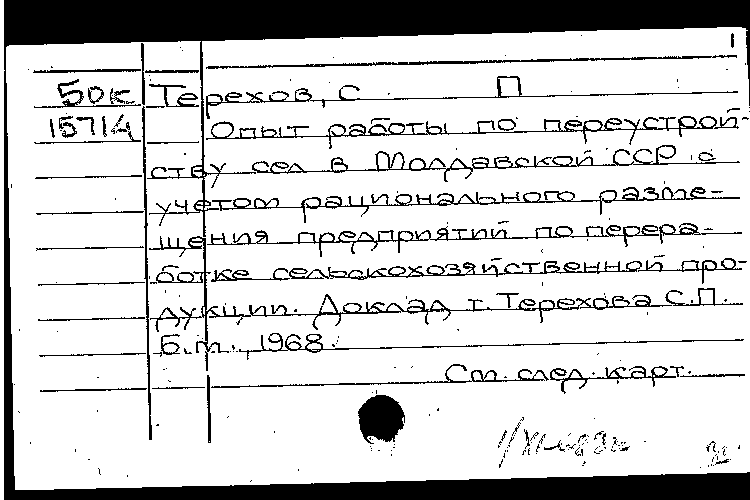 1
50к Терехов, С П
15714 Опыт работы по переустрой-
ству сел в Молдавской ССР с
учетом рационального разме-
щения предприятий по перера-
ботке сельскохозяйственной про-
дукции. Доклад т. Терехова С.П.
Б.м., 1968.
См. след. карт.